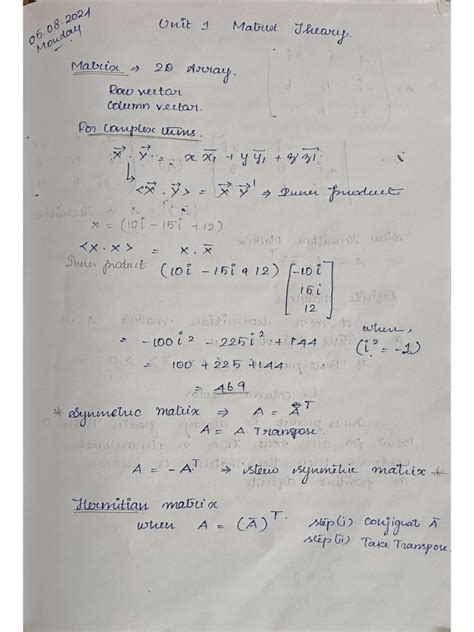 05.08.2024
Monday
Unit 1 Matrix Theory.
Matrix → 2D Array.
Row vector
Column vector.
For complex nums.
x⃗ . y⃗ = x x̄₁ + y ȳ₁ + z z̄₁
<x⃗ . y⃗> = x⃗ y⃗' → Inner product
x = (10i - 15i + 12)
<x . x> = x . x̄
Inner product
(10i - 15i + 12) [-10i
15i
12]
= -100i² - 225i² + 144
when, (i² = -1)
= 100 + 225 + 144
= 469
* Symmetric matrix ⇒ A = A^T
A = A Transpose.
A = -A^T ⇒ skew symmetric matrix *
Hermitian matrix
when A = (Ā)^T. step(i) Conjiguat Ā
step(ii) Take Transpose.